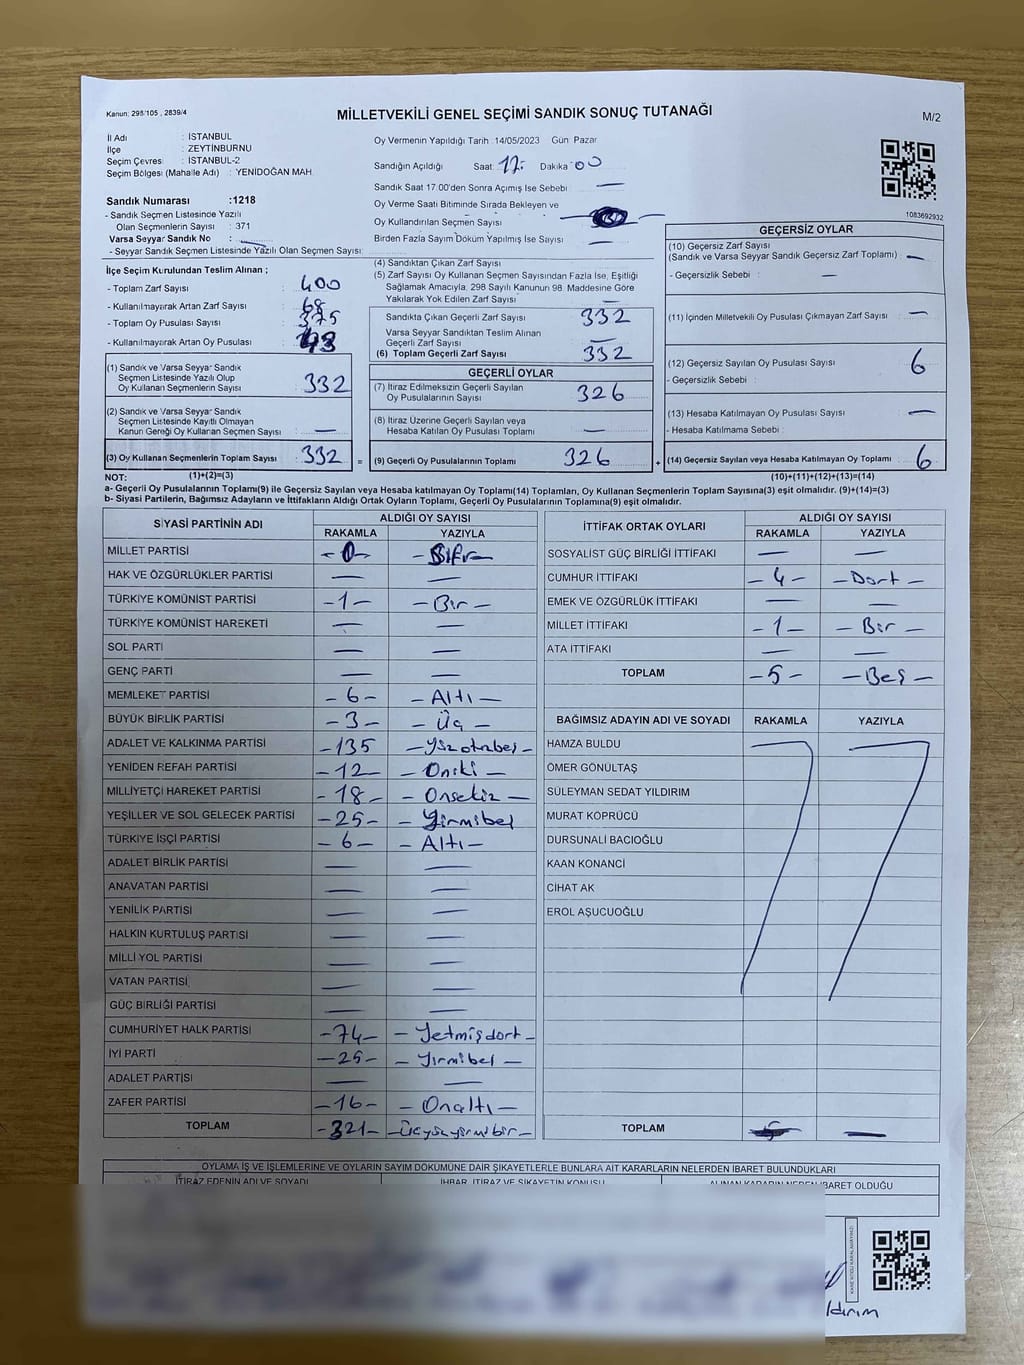 Kanun: 298/105 , 2839/4
MİLLETVEKİLİ GENEL SEÇİMİ SANDIK SONUÇ TUTANAĞI
M/2
İl Adı : İSTANBUL
İlçe : ZEYTİNBURNU
Seçim Çevresi : İSTANBUL-2
Seçim Bölgesi (Mahalle Adı) : YENİDOĞAN MAH.
Sandık Numarası :1218
- Sandık Seçmen Listesinde Yazılı
Olan Seçmenlerin Sayısı : 371
Varsa Seyyar Sandık No :
- Seyyar Sandık Seçmen Listesinde Yazılı Olan Seçmen Sayısı:
Oy Vermenin Yapıldığı Tarih :14/05/2023 Gün: Pazar
Sandığın Açıldığı Saat: 17: Dakika: 00
Sandık Saat 17:00'den Sonra Açımış İse Sebebi : —
Oy Verme Saati Bitiminde Sırada Bekleyen ve
Oy Kullandırılan Seçmen Sayısı :
Birden Fazla Sayım Döküm Yapılmış İse Sayısı : —
1083692932
İlçe Seçim Kurulundan Teslim Alınan ;
- Toplam Zarf Sayısı : 400
- Kullanılmayarak Artan Zarf Sayısı : 68
- Toplam Oy Pusulası Sayısı : 375
- Kullanılmayarak Artan Oy Pusulası :
(1) Sandık ve Varsa Seyyar Sandık
Seçmen Listesinde Yazılı Olup
Oy Kullanan Seçmenlerin Sayısı : 332
(2) Sandık ve Varsa Seyyar Sandık
Seçmen Listesinde Kayıtlı Olmayan
Kanun Gereği Oy Kullanan Seçmen Sayısı : —
(3) Oy Kullanan Seçmenlerin Toplam Sayısı : 332 =
(4) Sandıktan Çıkan Zarf Sayısı
(5) Zarf Sayısı Oy Kullanan Seçmen Sayısından Fazla İse, Eşitliği
Sağlamak Amacıyla, 298 Sayılı Kanunun 98. Maddesine Göre
Yakılarak Yok Edilen Zarf Sayısı : —
Sandıkta Çıkan Geçerli Zarf Sayısı : 332
Varsa Seyyar Sandıktan Teslim Alınan
Geçerli Zarf Sayısı : —
(6) Toplam Geçerli Zarf Sayısı : 332
GEÇERLİ OYLAR
(7) İtiraz Edilmeksizin Geçerli Sayılan
Oy Pusulalarının Sayısı : 326
(8) İtiraz Üzerine Geçerli Sayılan veya
Hesaba Katılan Oy Pusulası Toplamı : —
(9) Geçerli Oy Pusulalarının Toplamı : 326 +
GEÇERSİZ OYLAR
(10) Geçersiz Zarf Sayısı
(Sandık ve Varsa Seyyar Sandık Geçersiz Zarf Toplamı) : —
- Geçersizlik Sebebi : —
(11) İçinden Milletvekili Oy Pusulası Çıkmayan Zarf Sayısı : —
(12) Geçersiz Sayılan Oy Pusulası Sayısı : 6
- Geçersizlik Sebebi :
(13) Hesaba Katılmayan Oy Pusulası Sayısı : —
- Hesaba Katılmama Sebebi :
(14) Geçersiz Sayılan veya Hesaba Katılmayan Oy Toplamı : 6
NOT: (1)+(2)=(3) (10)+(11)+(12)+(13)=(14)
a- Geçerli Oy Pusulalarının Toplamı(9) ile Geçersiz Sayılan veya Hesaba katılmayan Oy Toplamı(14) Toplamları, Oy Kullanan Seçmenlerin Toplam Sayısına(3) eşit olmalıdır. (9)+(14)=(3)
b- Siyasi Partilerin, Bağımsız Adayların ve İttifakların Aldığı Ortak Oyların Toplamı, Geçerli Oy Pusulalarının Toplamına(9) eşit olmalıdır.
SİYASİ PARTİNİN ADI ALDIĞI OY SAYISI
RAKAMLA YAZIYLA
MİLLET PARTİSİ -0- - Sıfır -
HAK VE ÖZGÜRLÜKLER PARTİSİ — —
TÜRKİYE KOMÜNİST PARTİSİ -1- - Bir -
TÜRKİYE KOMÜNİST HAREKETİ — —
SOL PARTİ — —
GENÇ PARTİ — —
MEMLEKET PARTİSİ -6- - Altı -
BÜYÜK BİRLİK PARTİSİ -3- - Üç -
ADALET VE KALKINMA PARTİSİ -135 - Yüzotuzbeş -
YENİDEN REFAH PARTİSİ -12- - Oniki -
MİLLİYETÇİ HAREKET PARTİSİ -18- - Onsekiz -
YEŞİLLER VE SOL GELECEK PARTİSİ -25- - Yirmibeş
TÜRKİYE İŞÇİ PARTİSİ -6- - Altı -
ADALET BİRLİK PARTİSİ — —
ANAVATAN PARTİSİ — —
YENİLİK PARTİSİ — —
HALKIN KURTULUŞ PARTİSİ — —
MİLLİ YOL PARTİSİ — —
VATAN PARTİSİ — —
GÜÇ BİRLİĞİ PARTİSİ — —
CUMHURİYET HALK PARTİSİ -74- - Yetmişdört -
İYİ PARTİ -25- - Yirmibeş -
ADALET PARTİSİ — —
ZAFER PARTİSİ -16- - Onaltı -
TOPLAM -321- - Üçyüzyirmibir -
İTTİFAK ORTAK OYLARI ALDIĞI OY SAYISI
RAKAMLA YAZIYLA
SOSYALİST GÜÇ BİRLİĞİ İTTİFAKI — —
CUMHUR İTTİFAKI -4- - Dört -
EMEK VE ÖZGÜRLÜK İTTİFAKI — —
MİLLET İTTİFAKI -1- - Bir -
ATA İTTİFAKI — —
TOPLAM -5- - Beş -
BAĞIMSIZ ADAYIN ADI VE SOYADI RAKAMLA YAZIYLA
HAMZA BULDU
ÖMER GÖNÜLTAŞ
SÜLEYMAN SEDAT YILDIRIM
MURAT KÖPRÜCÜ
DURSUNALİ BACIOĞLU
KAAN KONANCİ
CİHAT AK
EROL AŞUCUOĞLU
TOPLAM —
OYLAMA İŞ VE İŞLEMLERİNE VE OYLARIN SAYIM DÖKÜMÜNE DAİR ŞİKAYETLERLE BUNLARA AİT KARARLARIN NELERDEN İBARET BULUNDUKLARI
İTİRAZ EDENİN ADI VE SOYADI İHBAR, İTİRAZ VE ŞİKAYETİN KONUSU ALINAN KARARIN NEDEN İBARET OLDUĞU
KARE KODU KARALAMAYINIZ!
ldırım